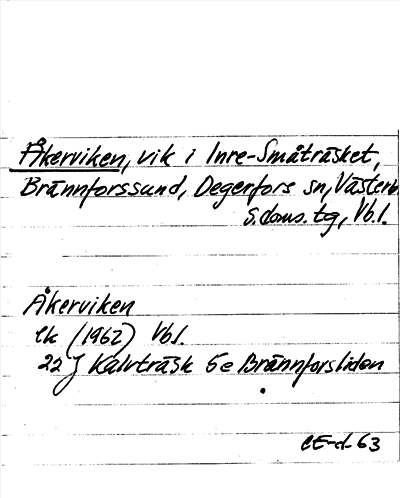 Åkerviken, vik i Inre-Småträsket,
Brännforssund, Degerfors sn, Västerb.
s. doms. tg, Vb.l.
Åkerviken
Ek (1962) Vbl.
22 J Kalvträsk 5e Brännforsliden
CE-d-63